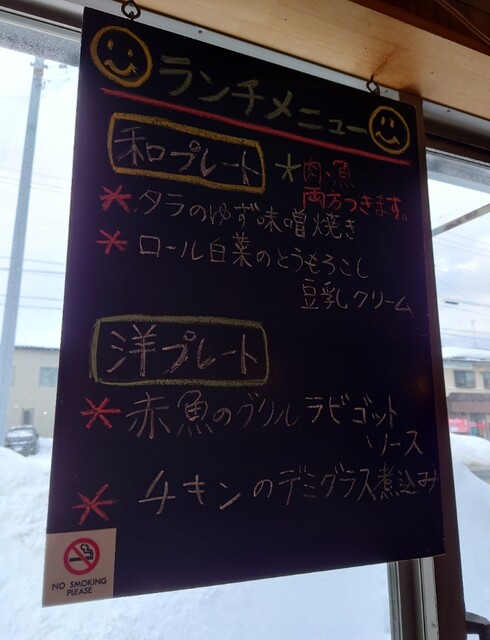 ランチメニュー
和プレート
*肉、魚
両方つきます。
*タラのゆず味噌焼き
*ロール白菜のとうもろこし
豆乳クリーム
洋プレート
*赤魚のグリル ラビゴット
ソース
*チキンのデミグラス煮込み
NO SMOKING
PLEASE